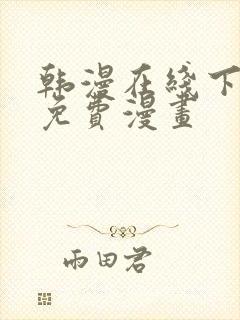 韩漫在线下
免費漫畫
雨田君